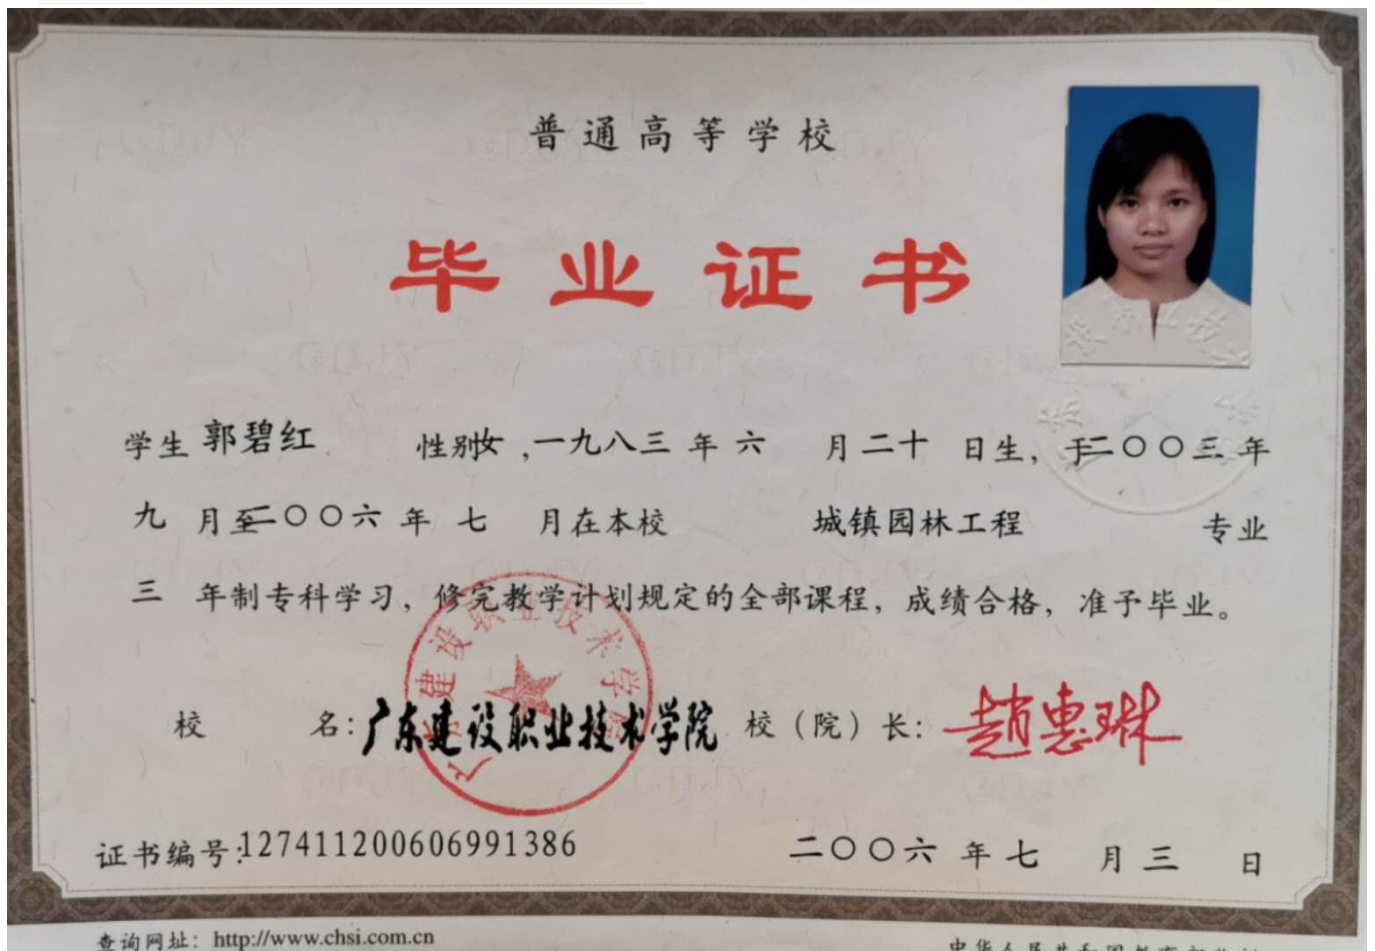 普通高等学校
毕业证书
学生 郭碧红 性别女，一九八三 年 六 月二十 日生，于二〇〇三 年
九 月至二〇〇六 年 七 月在本校 城镇园林工程 专业
三 年制专科学习，修完教学计划规定的全部课程，成绩合格，准予毕业。
广东建设职业技术学院
校 名：广东建设职业技术学院 校（院）长：赵惠琳
证书编号：127411200606991386 二〇〇六 年 七 月 三 日
查询网址：http://www.chsi.com.cn